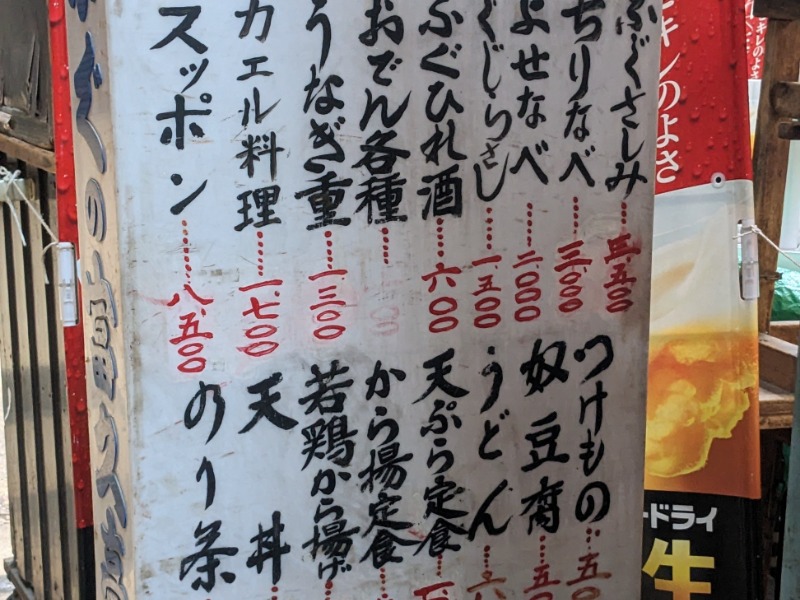 ふぐさしみ……三、五〇〇
ちりなべ……三、〇〇〇
よせなべ……二、〇〇〇
くじらさし……一、五〇〇
ふぐひれ酒……六〇〇
おでん各種……
うなぎ重……一、三〇〇
カエル料理……一、七〇〇
スッポン……八、五〇〇
つけもの……五〇
奴豆腐……五〇
うどん……六
天ぷら定食……
から揚定食……
若鶏から揚げ
天丼
のり茶
キレのよさ
ドライ
生